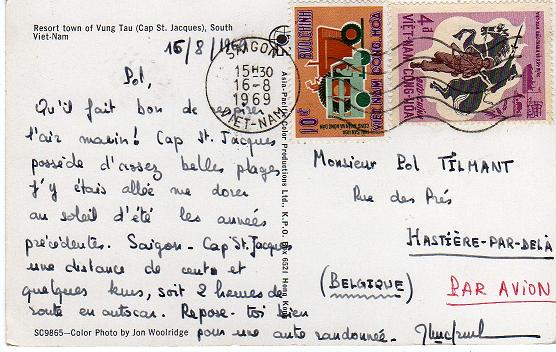 Resort town of Vung Tau (Cap St. Jacques), South
Viet-Nam
15/8/1969
Pol,
Qu'il fait bon de respirer
l'air marin! Cap St. Jacques
possède d'assez belles plages
J'y étais allée me dorer
au soleil d'été les années
précédentes. Saigon-Cap St. Jacques
une distance de cent et
quelques kms, soit 2 heures de
route en autocar. Repose-toi bien
pour une autre randonnée.
SC9865—Color Photo by Jon Woolridge
Asia-Pacific Color Productions Ltd., K.P.O. Box 6521 Hong Kong
SAIGON
15H30
16-8
1969
VIET-NAM
BƯU CHÍNH
VIỆT NAM CỘNG HÒA
10đ
4đ
VIỆT-NAM CỘNG-HÒA
Monsieur Pol TILMANT
Rue des Prés
HASTIÈRE-PAR-DELÀ
(BELGIQUE)
PAR AVION